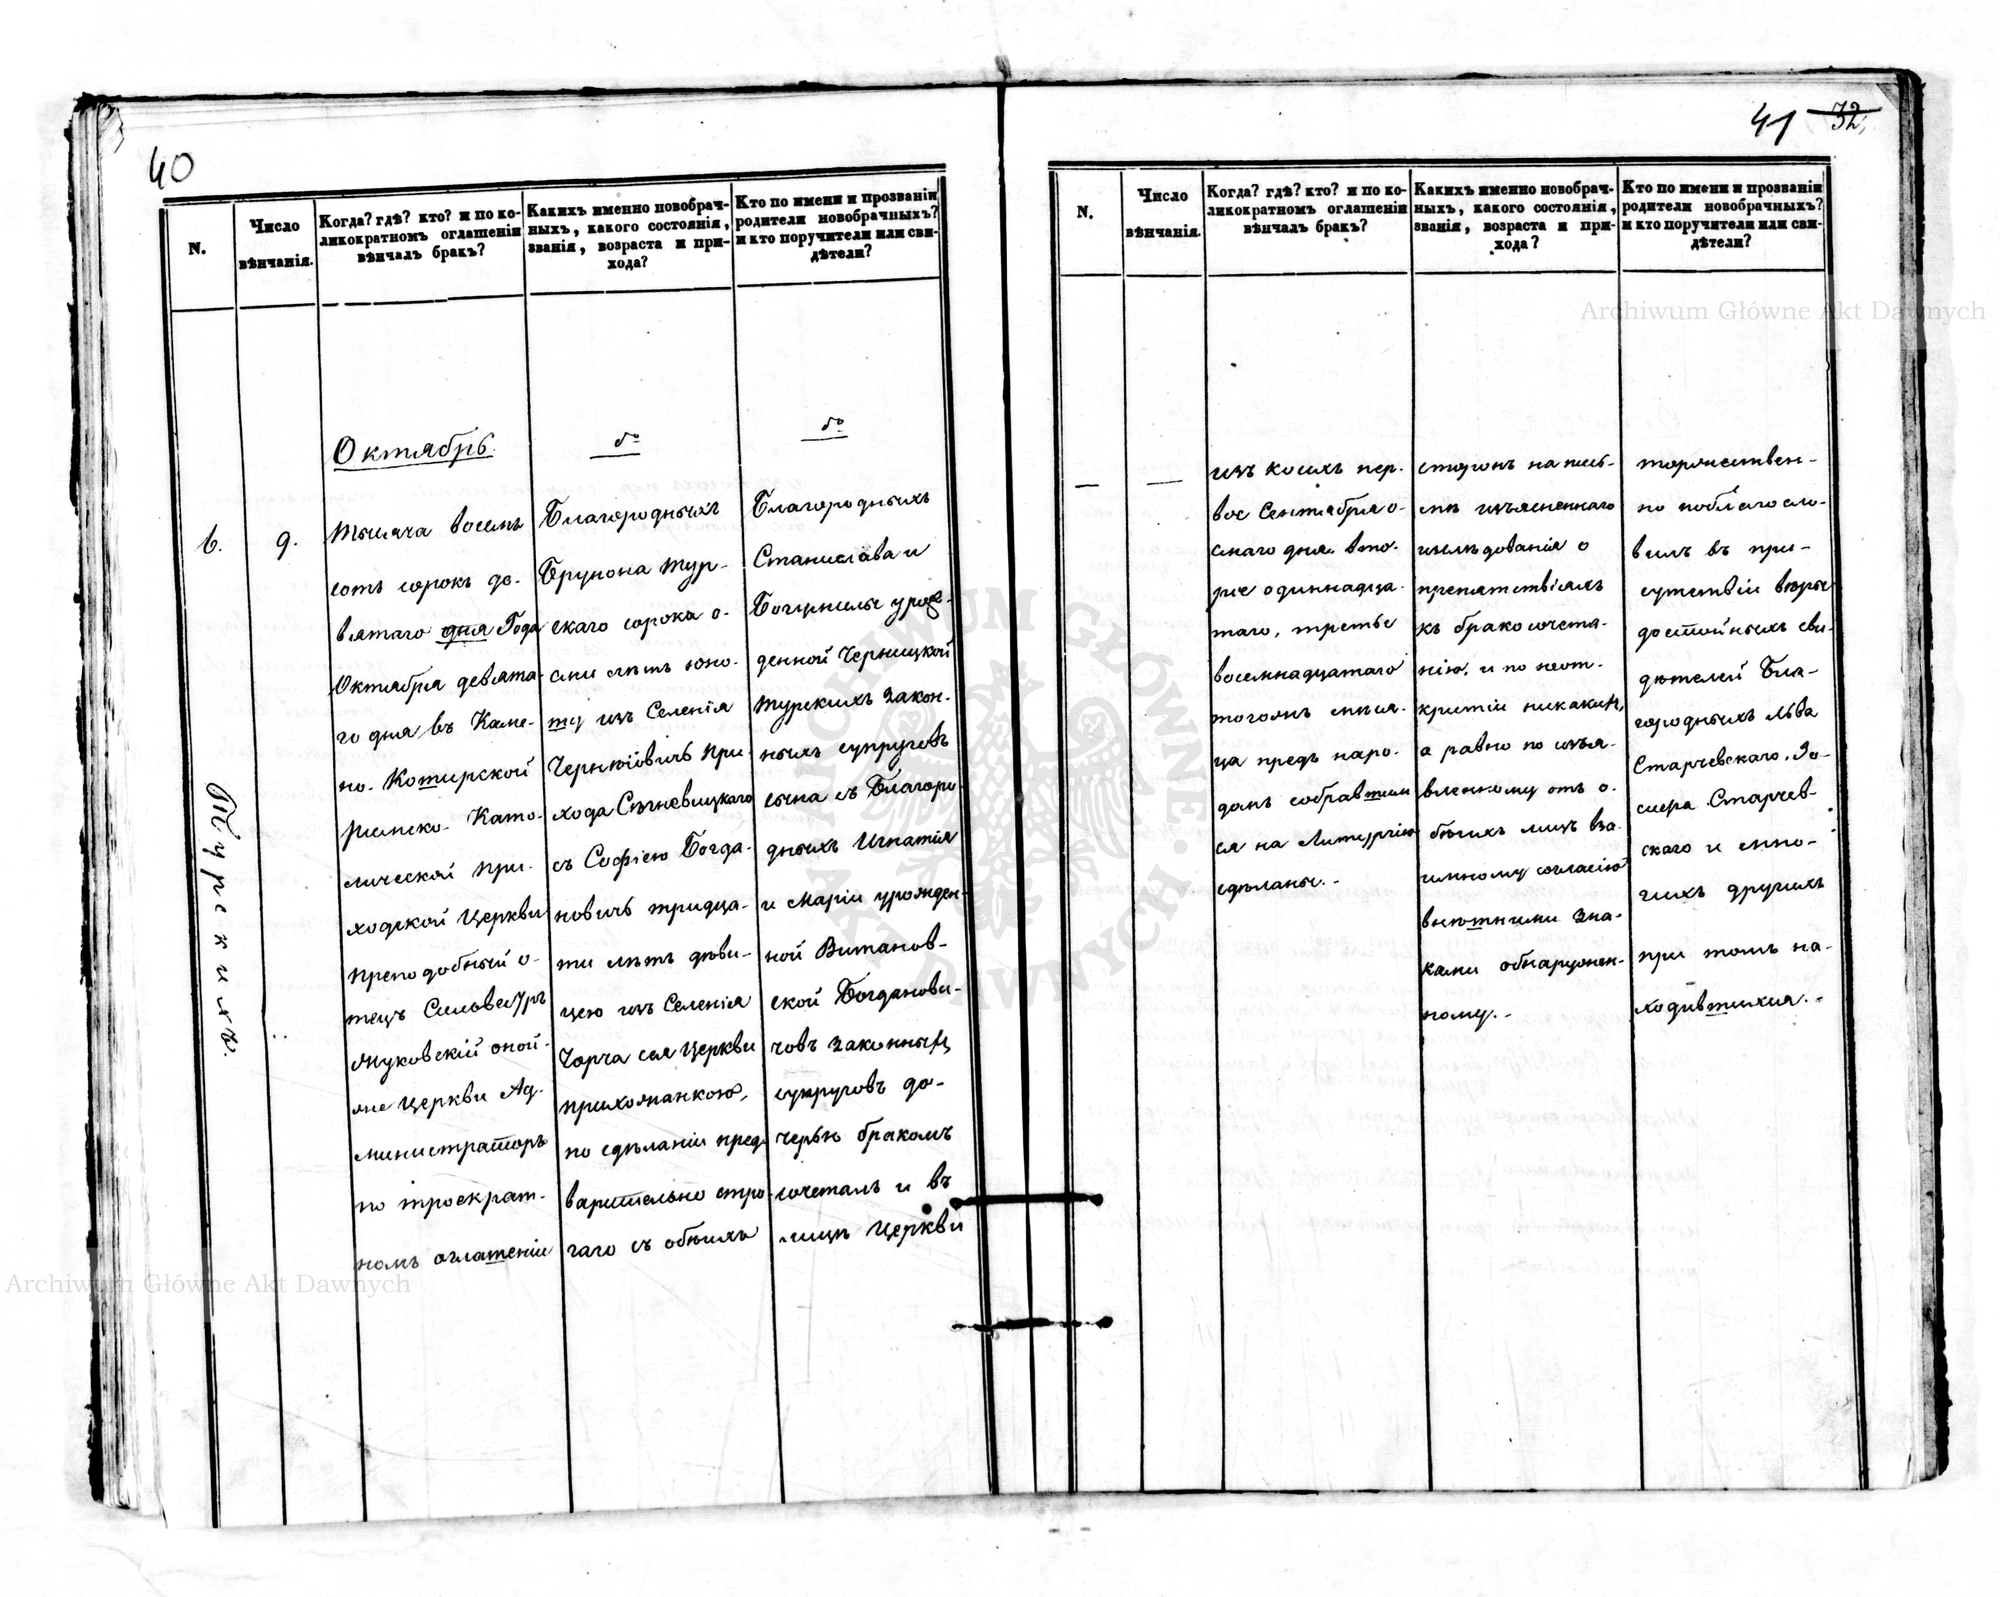 40
N.
Число
вѣнчанія.
Когда? гдѣ? кто? и по ко-
ликократномъ оглашеніи
вѣнчалъ бракъ?
Какихъ именно новобрач-
ныхъ, какого состоянія,
званія, возраста и при-
хода?
Кто по имени и прозванiи
родители новобрачныхъ?
и кто поручители или сви-
дѣтели?
6.
9.
Турскихъ.
Октябрь.
Тысяча восемь
сотъ сорокъ де-
вятаго дня Года
Октября девята-
го дня въ Каме-
но-Коширской
Римско-Като-
лической при-
ходской Церкви
преподобный о-
тецъ Сильвестръ
Жуковскій оной-
же Церкви Ад-
министраторъ
по троекрат-
номъ оглашеніи
до
Благородныхъ
Брунона Тур-
скаго сорока о-
сми лѣтъ юно-
шу изъ Селенія
при-
хода
съ Софіею Богда-
новичъ тридца-
ти лѣтъ дѣви-
цею изъ Селенія
Чорча сея Церкви
прихожанкою,
по сдѣланіи пред-
варительно стро-
гаго съ обѣихъ
до
Благородныхъ
Станислава и
Богумилы урож-
денной Черницкой
Турскихъ закон-
ныхъ супруговъ
сына съ Благоро-
дныхъ Игнатія
и Маріи урожден-
ной Витанов-
ской Богданови-
човъ законныхъ
супруговъ до-
черью бракомъ
сочеталъ и въ
лицѣ Церкви
41 32
N.
Число
вѣнчанія.
Когда? гдѣ? кто? и по ко-
ликократномъ оглашеніи
вѣнчалъ бракъ?
Какихъ именно новобрач-
ныхъ, какого состоянія,
званія, возраста и при-
хода?
Кто по имени и прозванiи
родители новобрачныхъ?
и кто поручители или сви-
дѣтели?
изъ коихъ пер-
вое Сентября о-
снаго дня, вто-
рое одиннадца-
таго, третье
восемнадцатаго
тогожъ мѣся-
ца предъ наро-
домъ собравшим
ся на Литургію
сдѣланы.-
сторонъ на пись-
мѣ изъясненнаго
изслѣдованія о
препятствіяхъ
къ бракосочета-
нію, и по неот-
крытіи никакихъ,
а равно по изъя-
вленному отъ о-
боихъ лицъ вза-
имному согласію
внѣшними зна-
ками обнаружен-
ному.-
торжествен-
но поблагосло-
вилъ въ при-
сутствіи вѣры
достойныхъ сви-
дѣтелей Бла-
городныхъ Льва
Старчевскаго, Іо-
сифа Старчев-
скаго и мно-
гихъ другихъ
при томъ на-
ходившихся.-
Archiwum Główne Akt Dawnych
Archiwum Główne Akt Dawnych
ARCHIWUM GŁÓWNE · AKT DAWNYCH ·